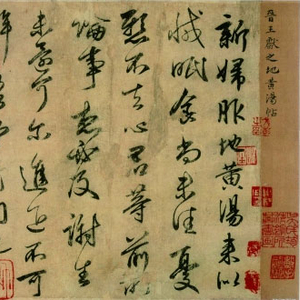 晉王獻之地黄湯帖
新婦服地黄湯來似
減眠食尚未佳憂
懸不去心君等前所
論事想必及謝生
未還可尔進退不可